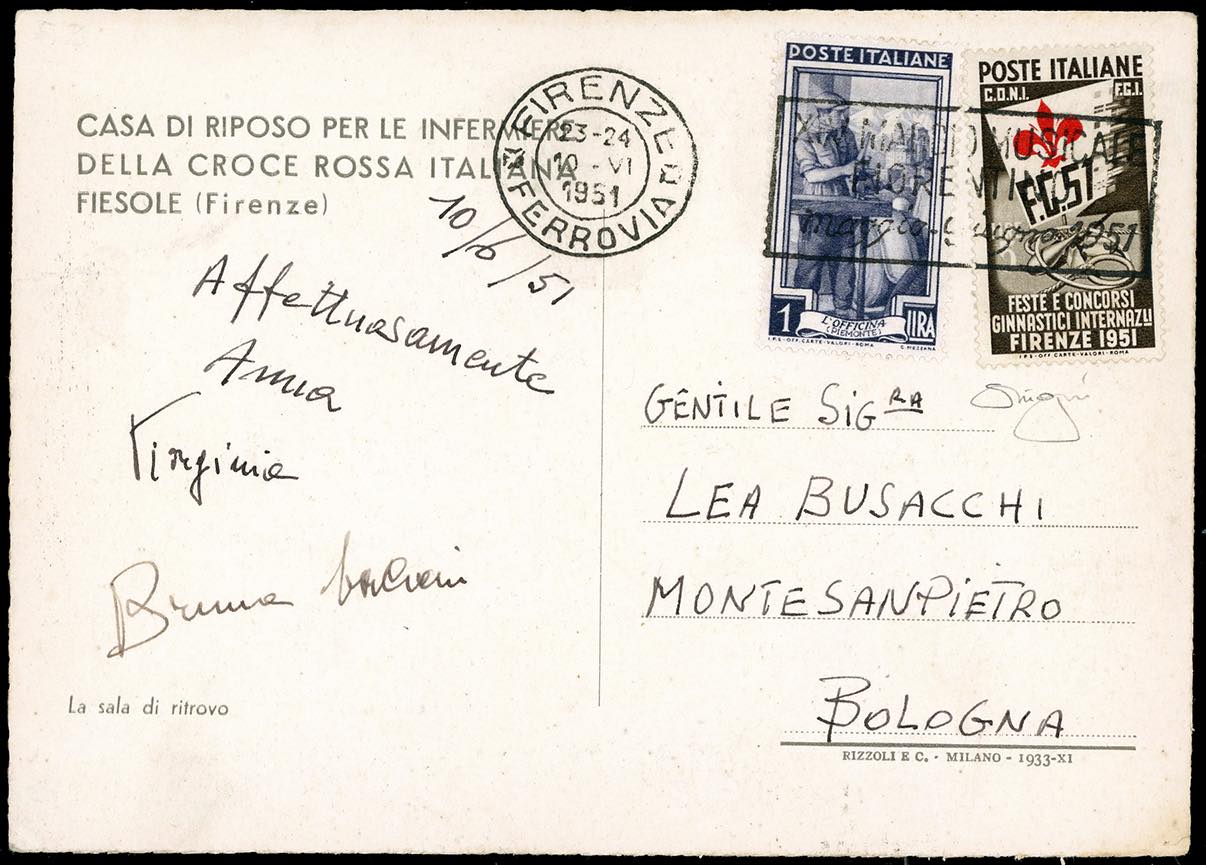 CASA DI RIPOSO PER LE INFERMIERE
DELLA CROCE ROSSA ITALIANA
FIESOLE (Firenze)
FIRENZE
23-24
10 - VI
1951
FERROVIA
POSTE ITALIANE
1 LIRA
L'OFFICINA
(PIEMONTE)
I.P.S.-OFF. CARTE-VALORI-ROMA C. MEZZANA
POSTE ITALIANE
C.O.N.I. F.G.I.
F.G.51
FESTE E CONCORSI
GINNASTICI INTERNAZLI
FIRENZE 1951
I.P.S-OFF. CARTE-VALORI-ROMA
MAGGIO MUSICALE
FIORENTINO
maggio-giugno 1951
10/6/51
Affettuosamente
Anna
Virginia
Bruna
La sala di ritrovo
GENTILE SIG RA
LEA BUSACCHI
MONTESANPIETRO
BOLOGNA
RIZZOLI E C. - MILANO - 1933-XI